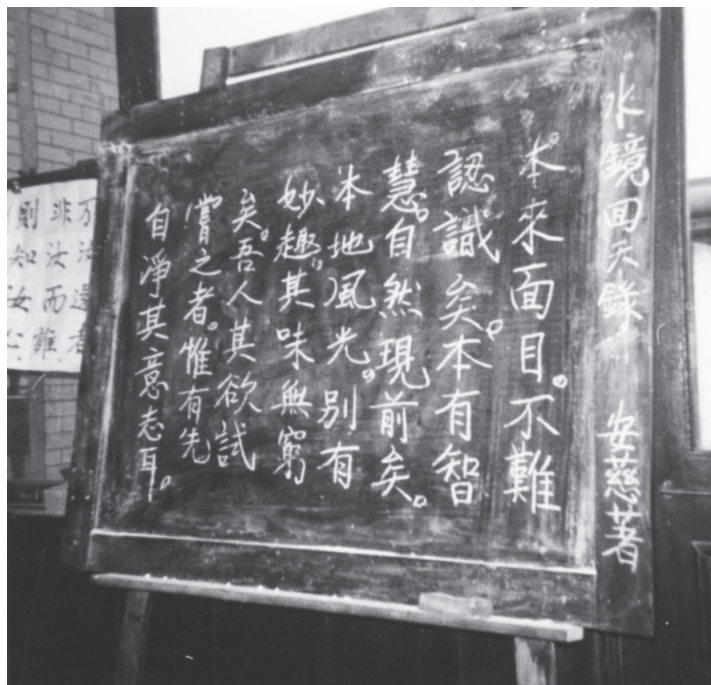 水鏡回天錄 安慈著
本來面目。不難
認識矣。本有智
慧。自然現前矣。
本地風光。別有
妙趣。其味無窮
矣。吾人其欲試
嘗之者。惟有先
自淨其意志耳。
非汝而誰
則知汝心